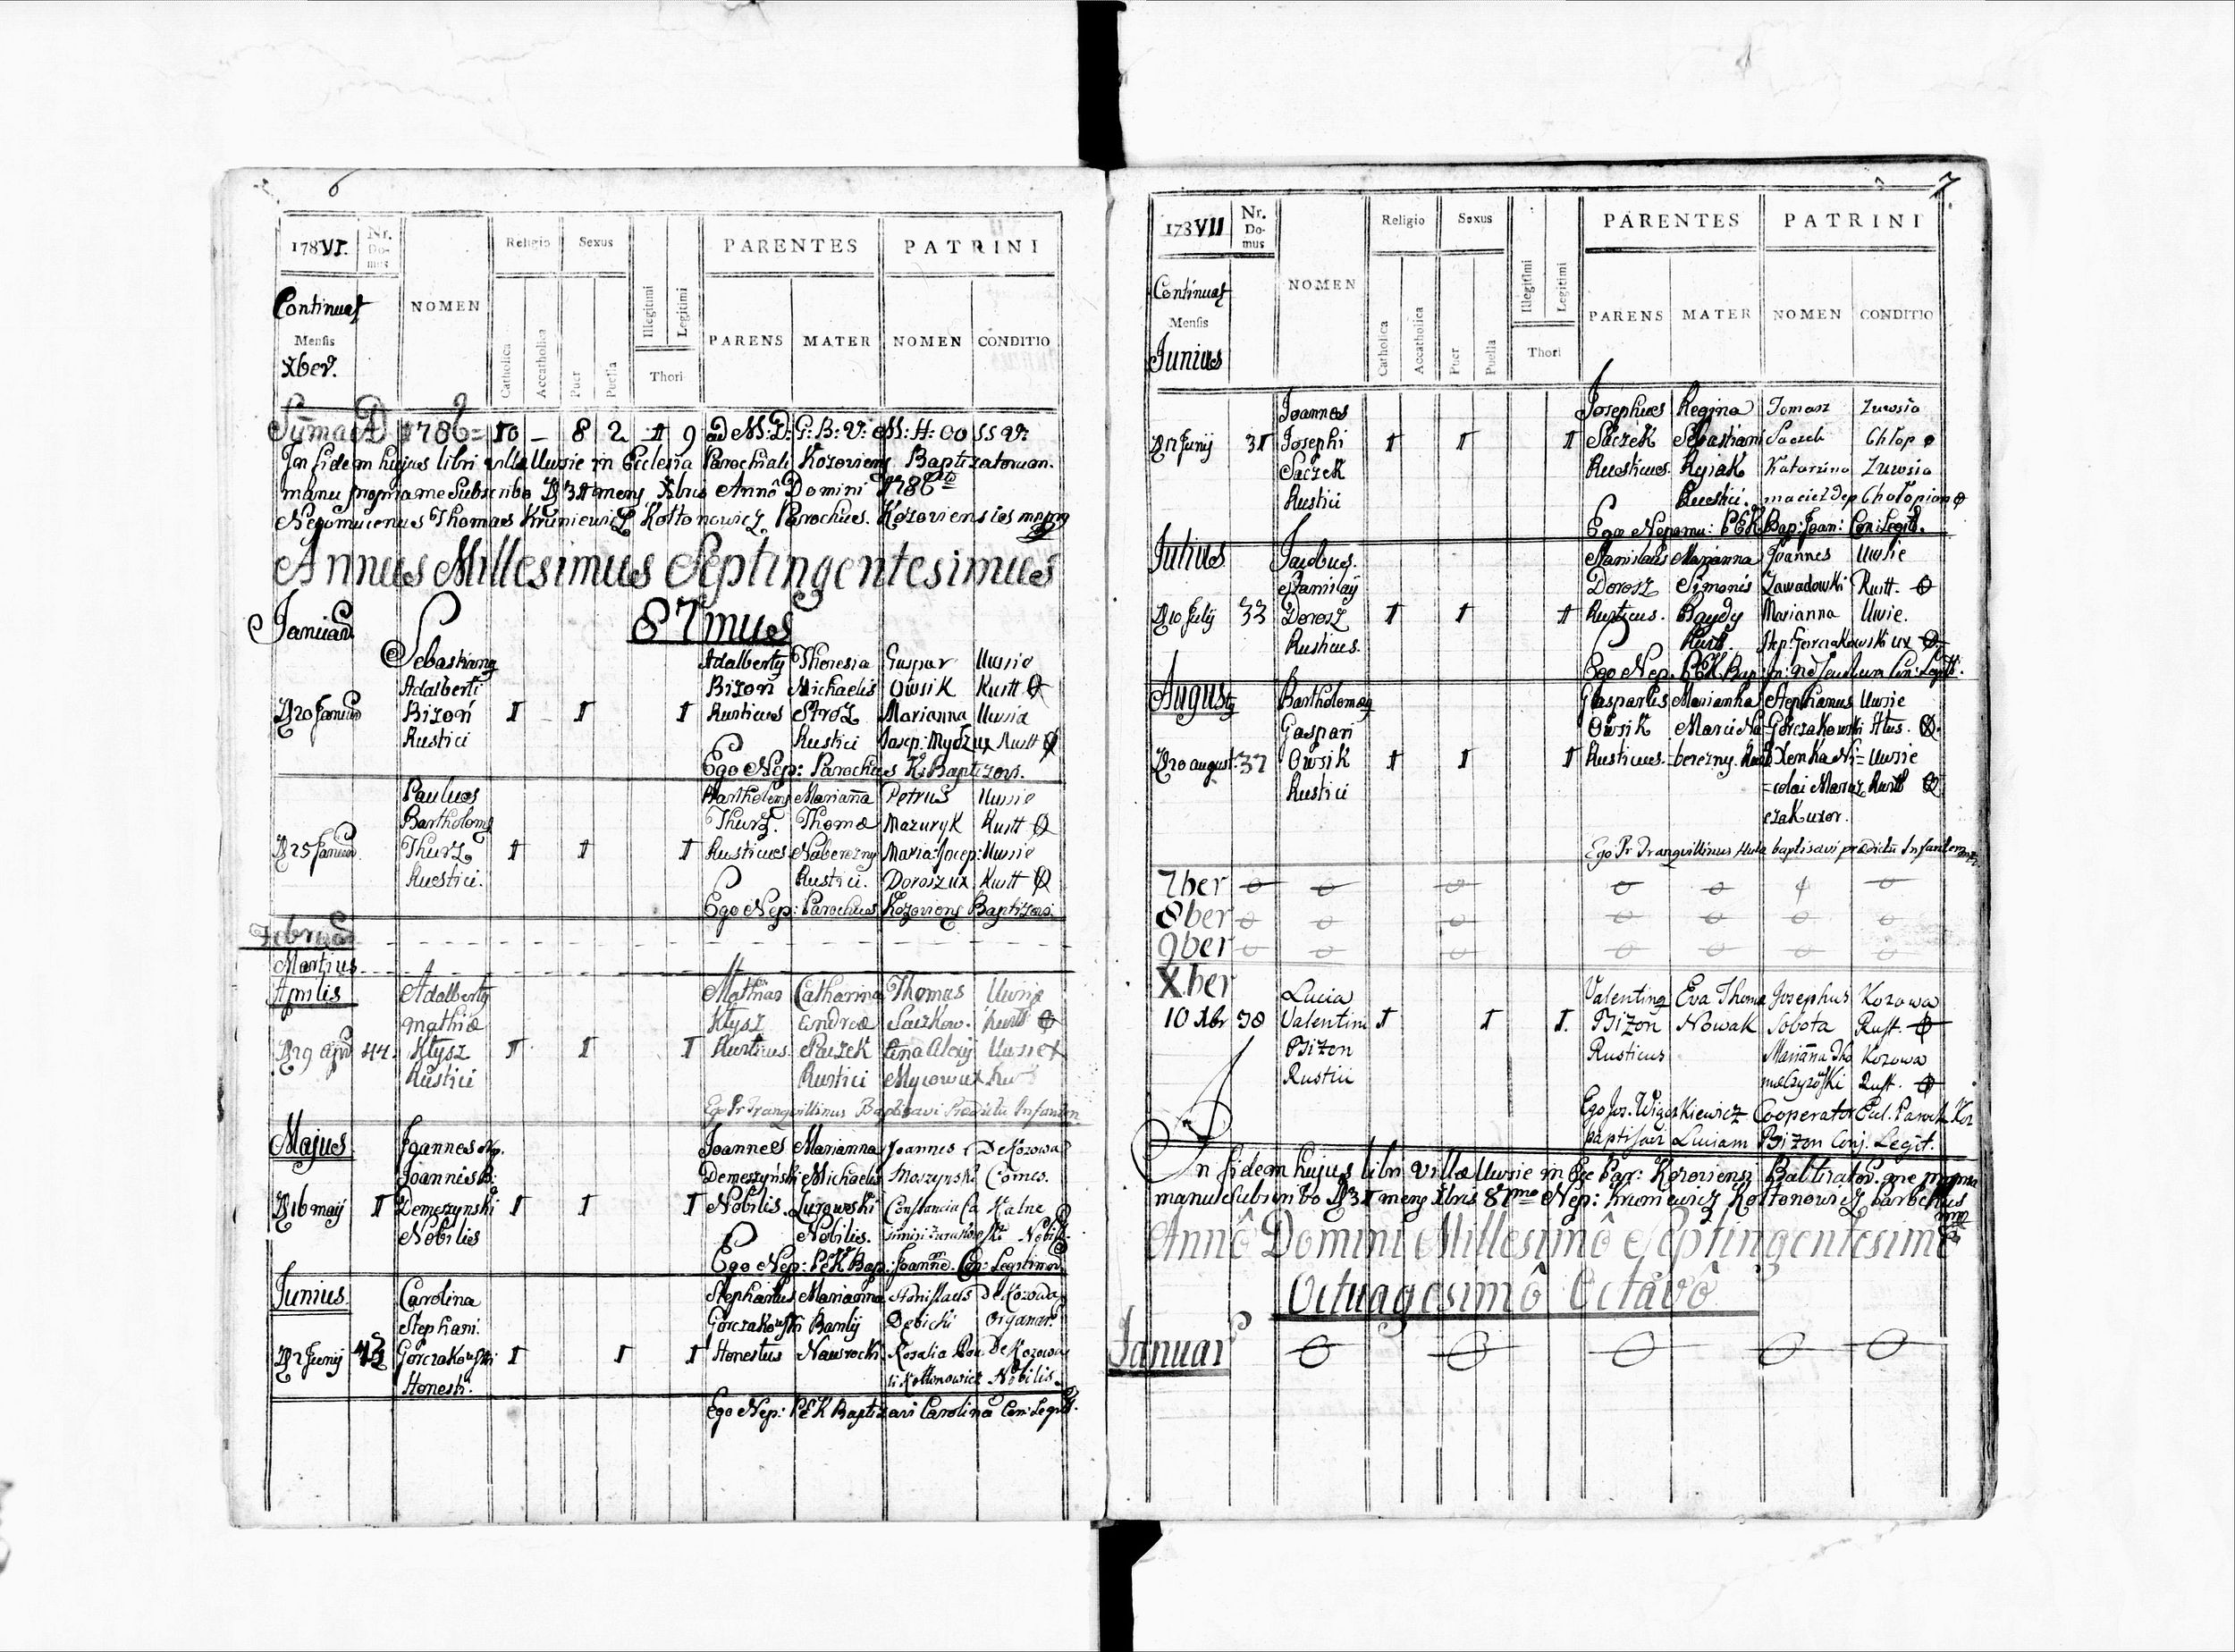 6
178VI.
Nr. Do- mus
NOMEN
Religio
Sexus
PARENTES
PATRINI
Continuat
Mensis
Xber.
Catholica
Accatholica
Puer
Puella
Illegitimi
Legitimi
Thori
PARENS
MATER
NOMEN
CONDITIO
Suma AD 1786 = 10 – 8 2 1 9 ad M: D: G: B: V: M: H: OO SS V:
In fidem hujus libri villa Uwsie in Ecclesia Parochiali Kozoviens Baptizatorum.
manu propria me Subscribo D 31 mens Xbris Annô Domini 1786to
Nepomucenus Thomas Kruniewicz Kottonowicz Parochus Kozoviensis mppa
Annus Millesimus Septingentesimus
87mus
Januar
D 20 Januar
Sebastiang
Adalberti
Bizoń
Rustici
1 1 1
Adalberty
Bizoń
Rusticus
Theresia
Michaelis
Stroz
Rustici
Gaspar
Owsik
Marianna
Josep: Mydz ux
Uwsie
Rustt
Uwsia
Rustt
Ego Nep: Parochus K: Baptizavi.
D 25 Januar
Paulus
Bartholomg
Thurz
Rustici.
1 1 1
Bartholomg
Thurz.
Rusticus
Marianna
Thomæ
Naberezny
Rustici.
Petrus
Mazuryk
Maria: Josep:
Dorosz ux
Uwsie
Rustt
Uwsie
Rustt
Ego Nep: Parochus Kozoviens Baptizavi
Februar
Martius
Aprilis
D 29 Apri
44.
Adalberty
Mathiæ
Kłysz
Rustici
1 1 1
Mathias
Kłysz
Rusticus
Catharina
Andreæ
Saczek
Rustici
Thomas
Saczkow.
Uwsie
Rustt
Uwsie
Ego Pr Tranquillinus Baptisavi Prædictũ Infantem
Majus
D 16 maij
1
Joannes Np.
Joannis B:
Demeszynski
Nobilis
1 1 1
Joannes
Demeszyński
Nobilis.
Marianna
Michaelis
Lurowski
Nobilis.
Joannes
Moszynski
Constancia Ca
simiri Zurakowski
De Kozowa
Comes.
Kalne
Nobilis
Ego Nep: PEK Bap: Joannem. Con: Legitimor.
Junius
D 2 Junij
43
Carolina
Stephani.
Gorczakowski
Honesti.
1 1 1
Stephanus
Gorczakowski
Honestus
Marianna
Basilij
Nawrocki
Stanislaus
Dębicki
Rozalia Pau
li Kottonowicz
De Kozowa
Organar.
De Kozowa
Nobilis
Ego Nep: PEK Baptizavi Carolina Con: Legitt.
7
178VII
Nr. Do- mus
NOMEN
Religio
Sexus
PARENTES
PATRINI
Continuat
Mensis
Junius
Catholica
Accatholica
Puer
Puella
Illegitimi
Legitimi
Thori
PARENS
MATER
NOMEN
CONDITIO
D 17 Junij
31
Joannes
Josephi
Saczek
Rustici
1 1 1
Josephus
Saczek
Rusticus.
Regina
Sebastiani
Ryiak
Rustici.
Tomasz
Saczek
Katarzina
maciei Dep
Zuwsia
Chłop
Zuwsia
Chołopian
Ego Nepomu: PEK Bap: Joan: Con: Legitt.
Julius
D 10 July
33
Jacobus.
Stanislaij
Dorosz
Rusticus.
1 1 1
Stanislaus
Dorosz
Rusticus.
Marianna
Simonis
Baydy
Rustt.
Joannes
Zawadowski
Marianna
Step: Gorczakowski ux
Uwsie
Rustt.
Uwsie.
Ego Nep. PEK Bap
August
D 20 august.
37
Bartholomæg
Gaspari
Owsik
Rustici
1 1 1
Gasparus
Owsik
Rusticus.
Marianna
Marci Na-
berezny.
Stephanus
Gorczakowski
Xenka Ni=
=colai Maru
czak uxor.
Uwsie
Hus.
Uwsie
Rustt
Ego Pr Tranquillinus Huta baptisavi prædictũ Infantem
7ber
8ber
9ber
Xber
10 Xbr
38
Lucia
Valentini
Bizon
Rustici
1 1 1.
Valenting
Bizon
Rusticus
Eva Thoma
Nowak
Josephus
Sobota
Marianna Tho
mæ
Kozowa
Rust.
Kozowa
Rust.
Ego Jos. Wigoskiewicz Cooperator Ecl. Paroch Koz
baptisavi Luciam Bizon Conj. Legit.
In fidem hujus libri villæ Uwsie in Ecc Par: Kozoviensi Baptizator. me mppa
manu Subscribo D 31 mens Xbris 87mo Nep: Kruniewicz Kottonowicz
Annô Domini Millesimô Septingentesimô
Octuagesimô Octavô
Januar